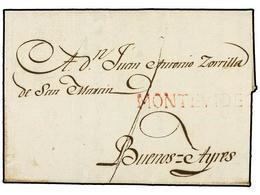 A D.ⁿ Juan Antonio Zorrilla
de San Martin
MONTEVIDE
Buenos-Ayres